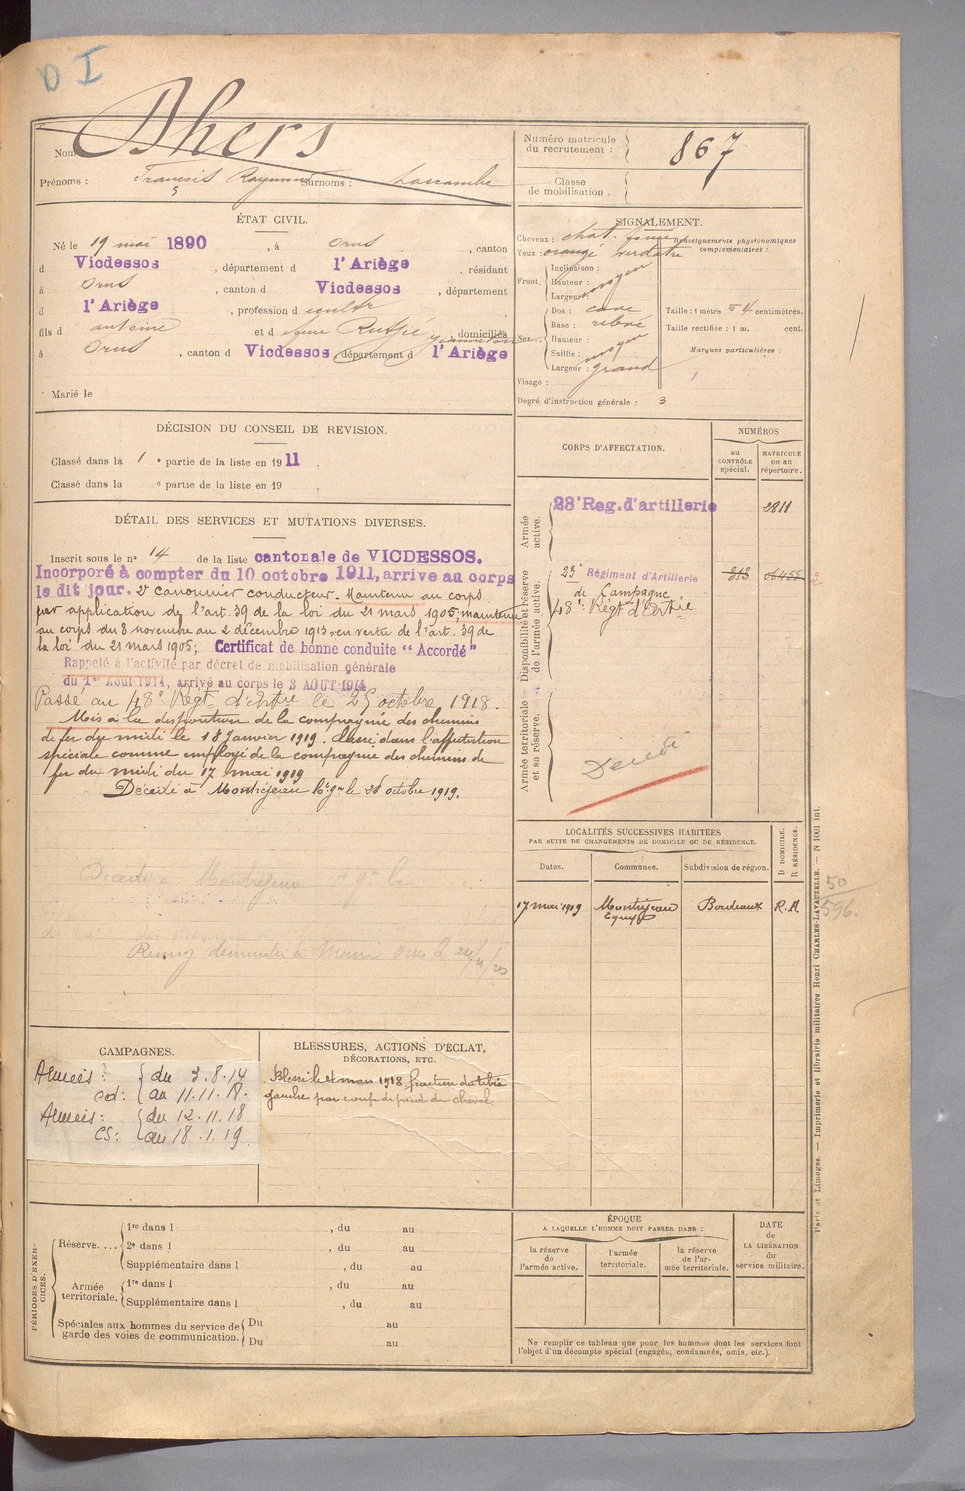 D I
Nom Dhers
Prénoms : Francois Raymond Surnoms : Lacrambe
Numéro matricule du recrutement : 867
Classe de mobilisation :
ÉTAT CIVIL.
Né le 19 mai 1890, à Orus, canton
d Vicdessos, département d l'Ariège, résidant
à Orus, canton d Vicdessos, département
d l'Ariège, profession d cultr
fils d antoine et d Rutfié, domiciliés
à Orus, canton d Vicdessos, département d l'Ariège
Marié le
SIGNALEMENT.
Cheveux : chat. foncé
Renseignements physionomiques complémentaires :
Yeux : orangé verdatre
Front. Inclinaison :
Hauteur : moyen
Largeur :
Nez. Dos : cave
Base : relevé
Hauteur :
Saillie : moyen
Largeur : grand
Visage :
Taille : 1 mètre 54 centimètres.
Taille rectifiée : 1 m. cent.
Marques particulières :
Degré d'instruction générale : 3
DÉCISION DU CONSEIL DE REVISION.
Classé dans la 1e partie de la liste en 1911.
Classé dans la e partie de la liste en 19 .
DÉTAIL DES SERVICES ET MUTATIONS DIVERSES.
Inscrit sous le n° 14 de la liste cantonale de VICDESSOS.
Incorporé à compter du 10 octobre 1911, arrive au corps
le dit jour. 2e canonnier conducteur. Maintenu au corps
par application de l'art. 39 de la loi du 21 mars 1905; maintenu
au corps du 8 novembre au 2 décembre 1913, en vertu de l'art. 39 de
la loi du 21 mars 1905; Certificat de bonne conduite "Accordé"
Rappelé à l'activité par décret de mobilisation générale
du 1er Aout 1914, arrivé au corps le 3 AOUT 1914
Passé au 48e Régt d'Artrie le 25 octobre 1918.
Mis à la disposition de la compagnie des chemins
de fer du midi le 18 Janvier 1919. Classé dans l'affectation
spéciale comme employé de la compagnie des chemins de
fer du midi du 17 mai 1919
Décédé à Montréjeau le 28 octobre 1919.
Décédé à Montréjeau
CORPS D'AFFECTATION.
NUMÉROS
au CONTRÔLE spécial.
MATRICULE ou au répertoire.
Armée active.
28e Reg. d'artillerie 2811
Disponibilité et réserve de l'armée active.
23e Régiment d'Artillerie 06455
de Campagne
48e Régt d'Artie
Armée territoriale et sa réserve.
Décédé
LOCALITÉS SUCCESSIVES HABITÉES
PAR SUITE DE CHANGEMENTS DE DOMICILE OU DE RÉSIDENCE.
Dates. Communes. Subdivision de région. D DOMICILE. R RÉSIDENCE.
17 mai 1919 Montréjeau Bordeaux R.A
50
596.
CAMPAGNES.
Armées : du 3.8.14
cd : au 11.11.18.
Armées : du 12.11.18
CS : au 18.1.19
BLESSURES, ACTIONS D'ÉCLAT,
DÉCORATIONS, ETC.
Blessé le mars 1918, fracture du tibia
gauche par coup de pied de cheval.
PÉRIODES D'EXERCICES.
Réserve.... 1re dans l , du au
2e dans l , du au
Supplémentaire dans l , du au
Armée territoriale. 1re dans l , du au
Supplémentaire dans l , du au
Spéciales aux hommes du service de garde des voies de communication. Du au
Du au
ÉPOQUE
A LAQUELLE L'HOMME DOIT PASSER DANS :
la réserve de l'armée active.
l'armée territoriale.
la réserve de l'armée territoriale.
DATE de LA LIBÉRATION du service militaire.
Ne remplir ce tableau que pour les hommes dont les services font
l'objet d'un décompte spécial (engagés, condamnés, omis, etc.).
Paris et Limoges. — Imprimerie et librairie militaires Henri CHARLES-LAVAUZELLE. — N 1001 int.